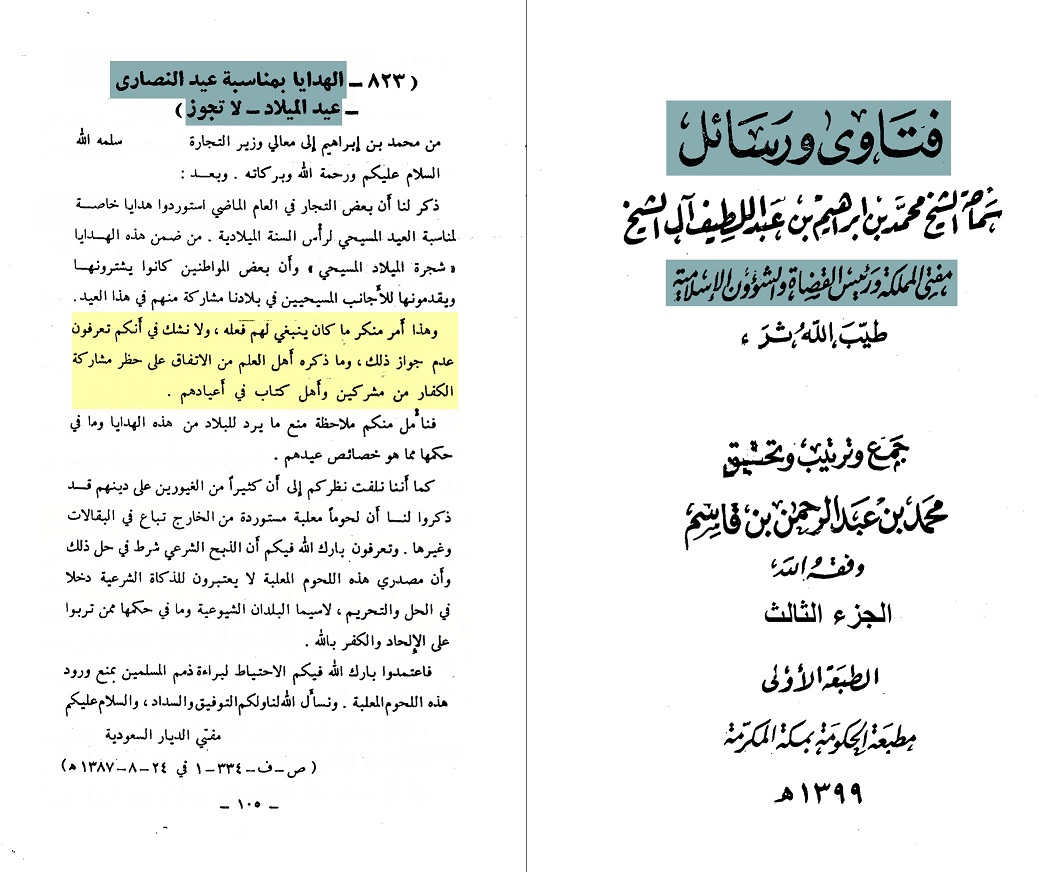 فتاوى ورسائل
سماحة الشيخ محمد بن ابراهيم بن عبد اللطيف آل الشيخ
مفتي المملكة ورئيس القضاة والشؤون الإسلامية
طيّب الله ثره
جمع وترتيب وتحقيق
محمد بن عبد الرحمن بن قاسم
وفقه الله
الجزء الثالث
الطبعة الأولى
مطبعة الحكومة بمكة المكرمة
١٣٩٩ هـ
(٨٢٣ ــ الهدايا بمناسبة عيد النصارى
ــ عيد الميلاد ــ لا تجوز)
من محمد بن إبراهيم إلى معالي وزير التجارة سلمه الله
السلام عليكم ورحمة الله وبركاته . وبعد :
ذكر لنا أن بعض التجار في العام الماضي استوردوا هدايا خاصة
لمناسبة العيد المسيحي لرأس السنة الميلادية . من ضمن هذه الهدايا
« شجرة الميلاد المسيحي » وأن بعض المواطنين كانوا يشترونها
ويقدمونها للأجانب المسيحيين في بلادنا مشاركة منهم في هذا العيد.
وهذا أمر منكر ما كان ينبغي لهم فعله ، ولا نشك في أنكم تعرفون
عدم جواز ذلك ، وما ذكره أهل العلم من الاتفاق على حظر مشاركة
الكفار من مشركين وأهل كتاب في أعيادهم .
فنأمل منكم ملاحظة منع ما يرد للبلاد من هذه الهدايا وما في
حكمها مما هو خصائص عيدهم .
كما أننا نلفت نظركم إلى أن كثيراً من الغيورين على دينهم قد
ذكروا لنا أن لحوماً معلبة مستوردة من الخارج تباع في البقالات
وغيرها . وتعرفون بارك الله فيكم أن الذبح الشرعي شرط في حل ذلك
وأن مصدري هذه اللحوم المعلبة لا يعتبرون للذكاة الشرعية دخلا
في الحل والتحريم ، لاسيما البلدان الشيوعية وما في حكمها ممن تربوا
على الإلحاد والكفر بالله .
فاعتمدوا بارك الله فيكم الاحتياط لبراءة ذمم المسلمين بمنع ورود
هذه اللحوم المعلبة . ونسأل الله لنا ولكم التوفيق والسداد ، والسلام عليكم
مفتي الديار السعودية
(ص–ف–٣٣٤–١ في ٢٤–٨–١٣٨٧ هـ)
– ١٠٥ –